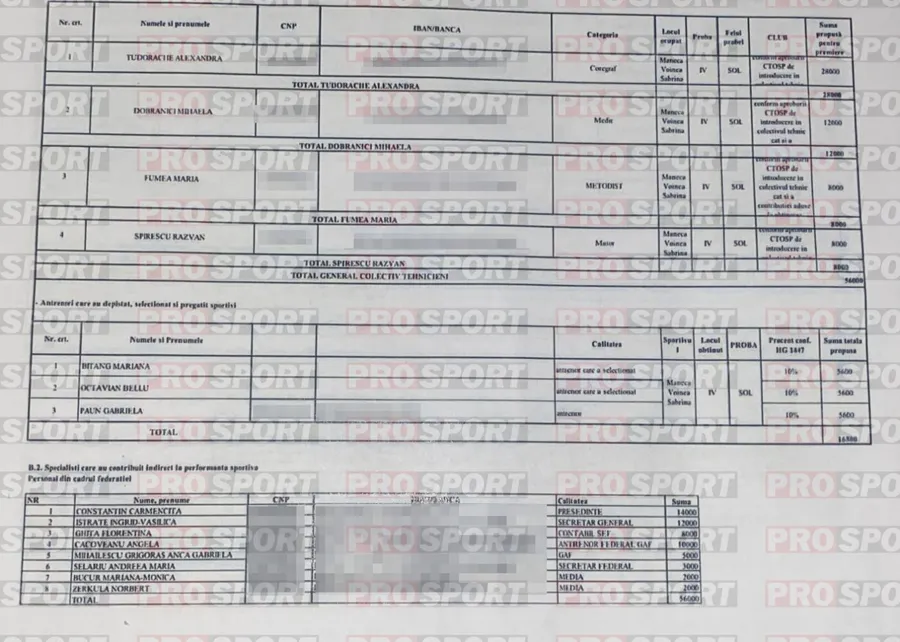 Nr. crt. Numele si prenumele CNP IBAN/BANCA Categoria Locul ocupat Proba Felul probei CLUB Suma propusă pentru premiere
1 TUDORACHE ALEXANDRA Coregraf Maneca Voinea Sabrina IV SOL conform aprobarii CTOSP de introducere in 28000
TOTAL TUDORACHE ALEXANDRA 28000
2 DOBRANICI MIHAELA Medic Maneca Voinea Sabrina IV SOL conform aprobarii CTOSP de introducere in colectivul tehnic cat si a 12000
TOTAL DOBRANICI MIHAELA 12000
3 FUMEA MARIA METODIST Maneca Voinea Sabrina IV SOL conform aprobarii CTOSP de introducere in colectivul tehnic cat si a contributiei aduse 8000
TOTAL FUMEA MARIA 8000
4 SPIRESCU RAZVAN Maneca Voinea Sabrina IV SOL conform aprobarii CTOSP de introducere in 8000
TOTAL SPIRESCU RAZVAN 8000
TOTAL GENERAL COLECTIV TEHNICIENI 56000
- Antrenori care au depistat, selectionat si pregatit sportivi
Nr. crt. Numele si Prenumele Calitatea Sportivul Locul obtinut PROBA Procent conf. HG 1447 Suma totala propusa
1 BITANG MARIANA antrenor care a selectionat Maneca Voinea Sabrina IV SOL 10% 5600
2 OCTAVIAN BELLU antrenor care a selectionat 10% 5600
3 PAUN GABRIELA antrenor 10% 5600
TOTAL 16800
B.2. Specialisti care au contribuit indirect la performanta sportiva
Personal din cadrul federatiei
NR Nume, prenume CNP IBAN/BANCA Calitatea Suma
1 CONSTANTIN CARMENCITA PRESEDINTE 14000
2 ISTRATE INGRID-VASILICA SECRETAR GENERAL 12000
3 GHITA FLORENTINA CONTABIL SEF 8000
4 CACOVEANU ANGELA ANTRENOR FEDERAL GAF 10000
5 MIHAILESCU GRIGORAS ANCA GABRIELA GAF 5000
6 SELARIU ANDREEA MARIA SECRETAR FEDERAL 3000
7 BUCUR MARIANA-MONICA MEDIA 2000
8 ZERKULA NORBERT MEDIA 2000
TOTAL 56000
PROSPORT